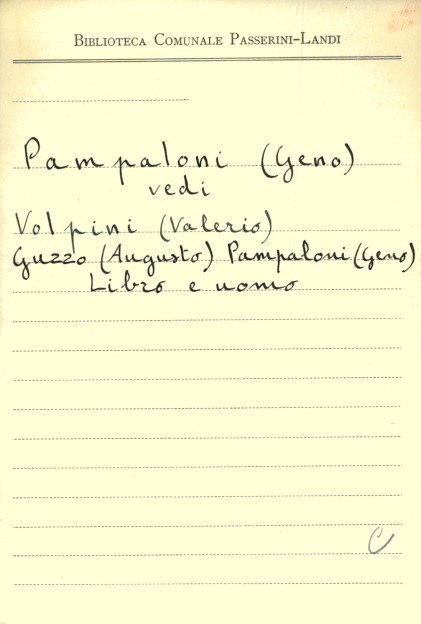 BIBLIOTECA COMUNALE PASSERINI-LANDI
Pampaloni (Geno)
vedi
Volpini (Valerio)
Guzzo (Augusto) Pampaloni (Geno)
Libro e uomo
C